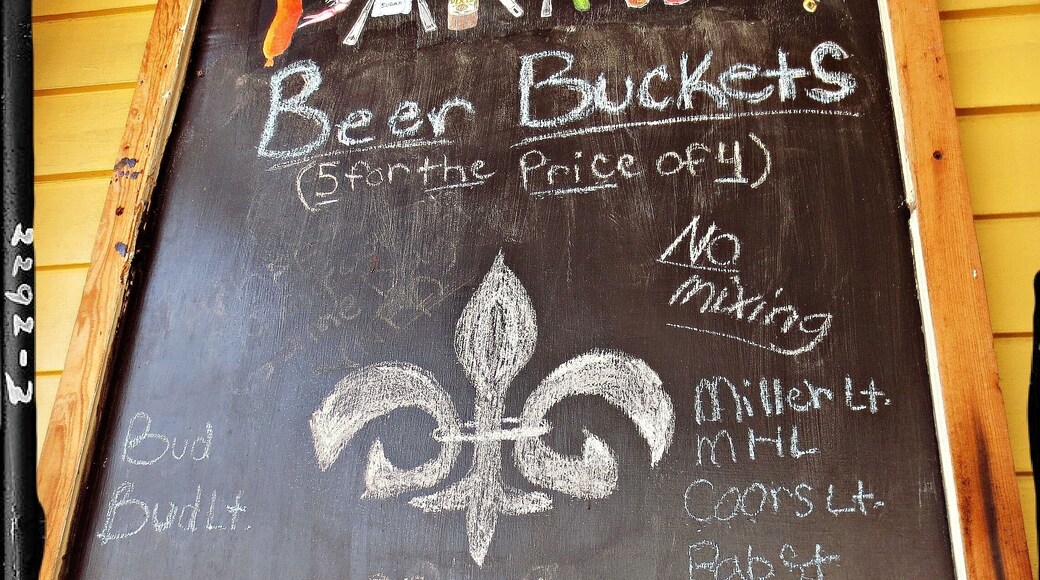 Beer Buckets
(5 for the Price of 4)
No
mixing
Bud
Bud Lt.
Miller Lt.
MHL
Coors Lt.
Pabst
2292-3